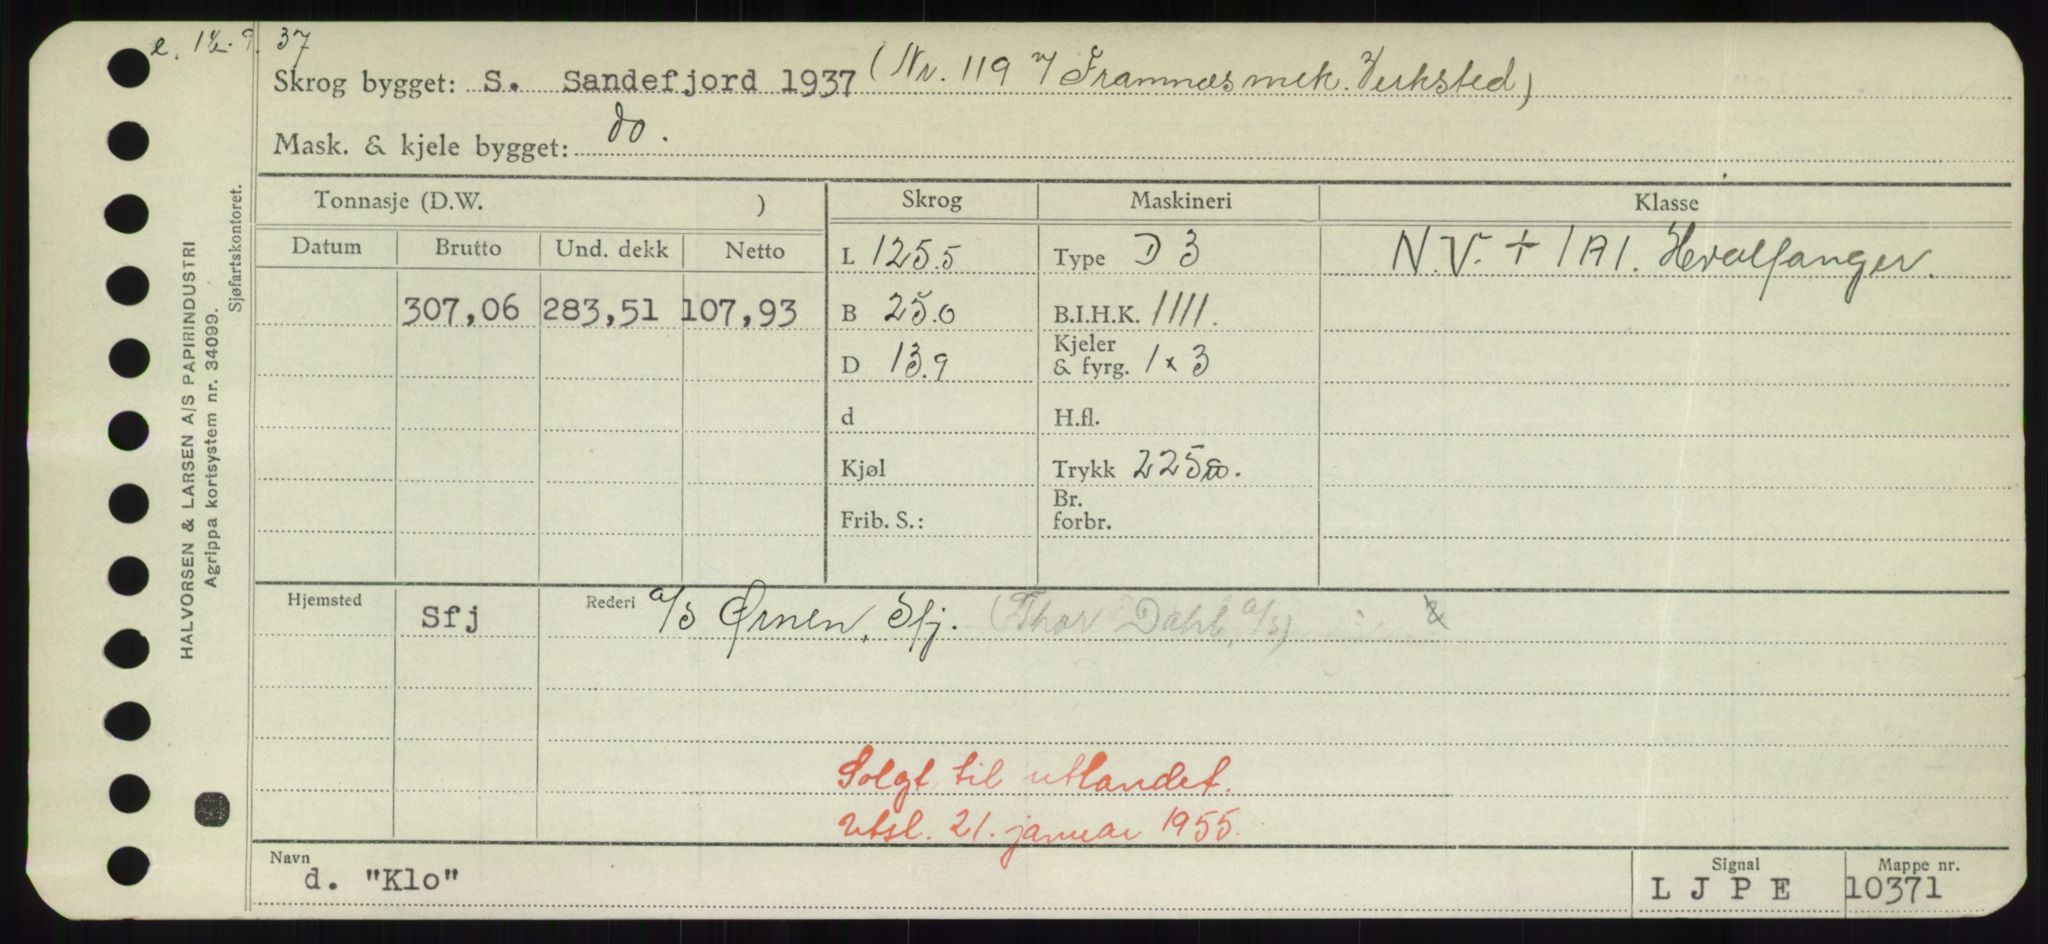 e. 1½. 9. 37
Skrog bygget: S. Sandefjord 1937 (Nr. 119 v/ Framnæs mek. Verksted)
Mask. & kjele bygget: do.
Tonnasje (D.W. ) Skrog Maskineri Klasse
Datum Brutto Und. dekk Netto L 125.5 Type D 3 N.V. + 1A1. Hvalfanger.
307,06 283,51 107,93 B 25.0 B.I.H.K. 1111.
D 13.9 Kjeler & fyrg. 1 x 3
d H.fl.
Kjøl Trykk 225
Frib. S.: Br. forbr.
Hjemsted Sfj Rederi a/s Ørnen, Sfj. (Thor Dahl, a/s)
Solgt til utlandet.
Utsl. 21. januar 1955.
Navn Signal Mappe nr.
d. "Klo" L J P E 10371
HALVORSEN & LARSEN A/S PAPIRINDUSTRI
Agrippa kortsystem nr. 34099.
Sjøfartskontoret.